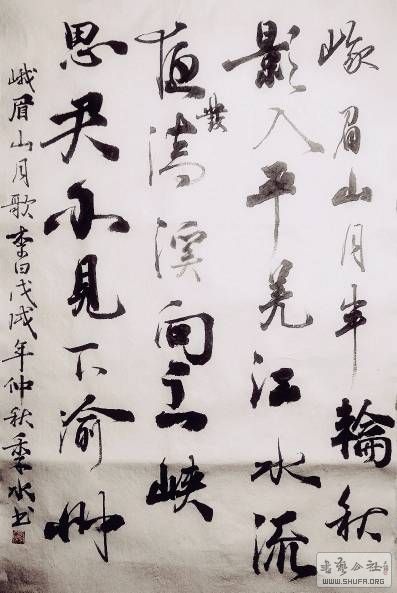 峨眉山月半輪秋
影入平羌江水流
夜發清溪向三峽
思君不見下渝州
峨眉山月歌李白戊戌年仲秋水书
公社
WWW.SHUFA.ORG